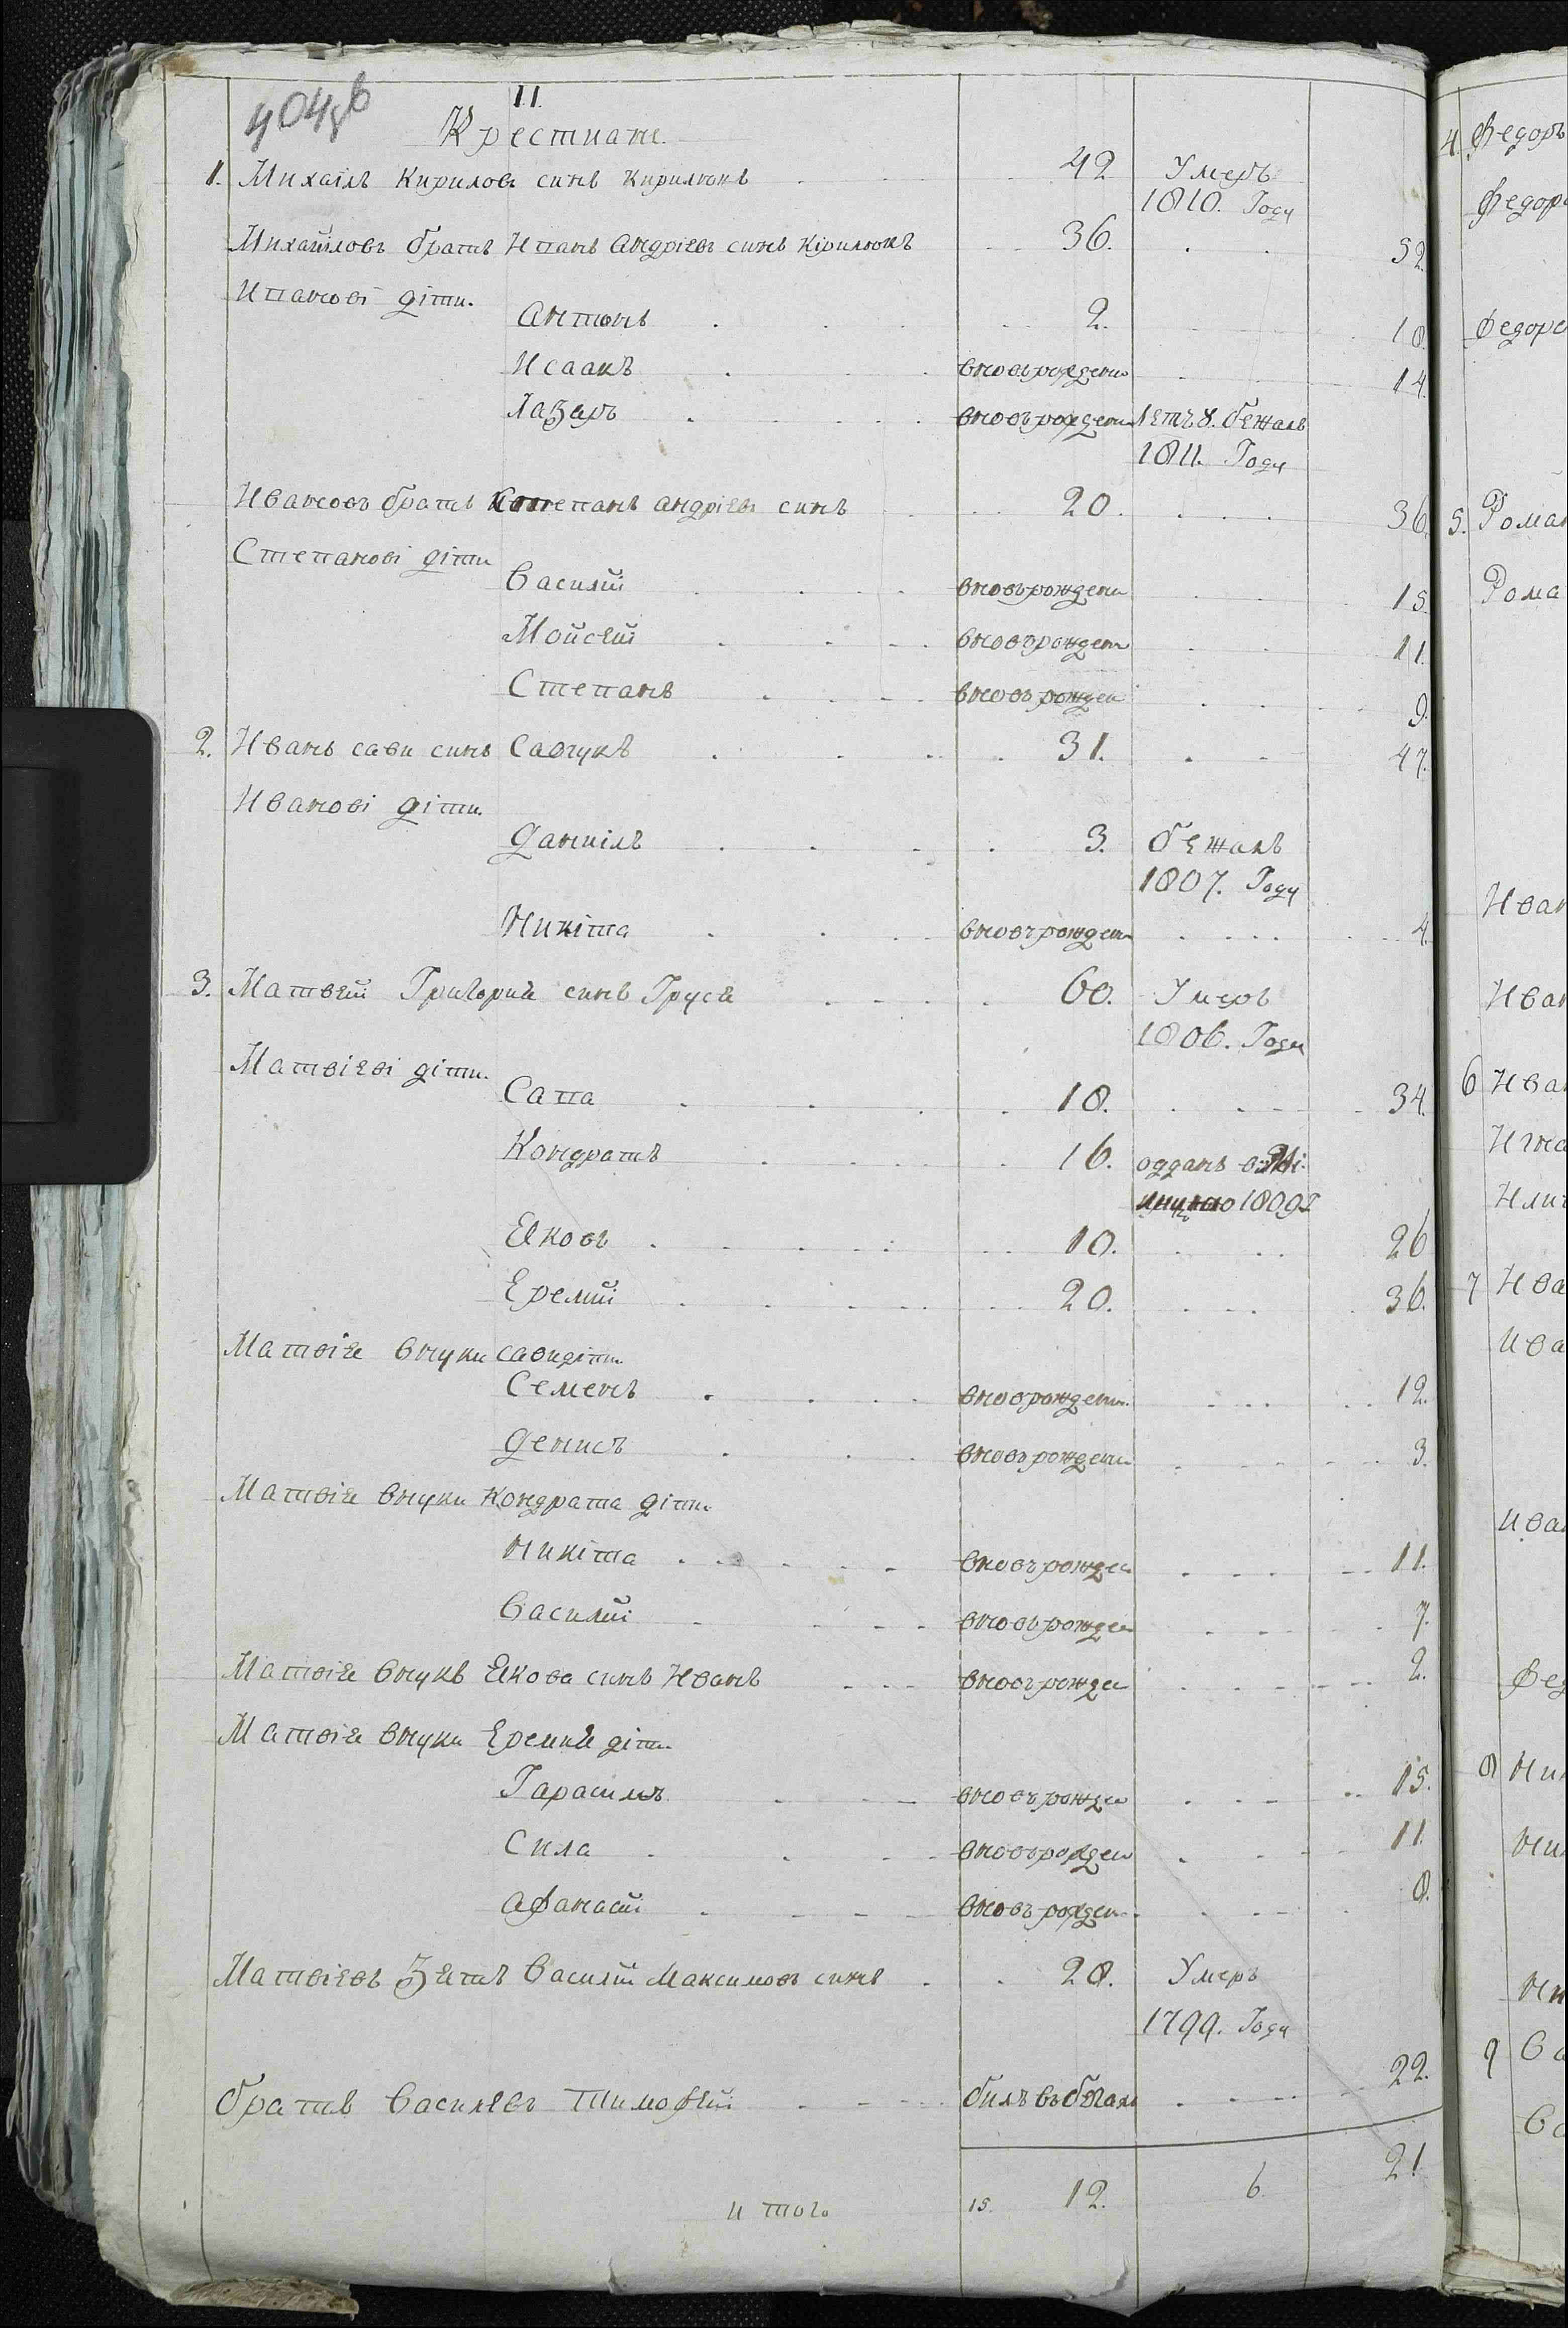 404зв
11.
Крестиане.
1. Михаілъ Кириловъ синъ Кирилюкъ 42 Умеръ
1810. Году
Михайловъ братъ Ипанъ Андріевъ синъ Кірилюкъ 36. 52.
Ипанові діти.
Антонъ 2. 18.
Исаакъ вновърождени 14.
Лазаръ вновърождени летъ 8. бежалъ
1811. Году
Ивановъ братъ Степанъ андріевъ синъ 20. 36.
Степанові діти
Василий вновърождени 15.
Мойсей вновърожден 11.
Степанъ вновърожден 9.
2. Иванъ сави синъ Савчукъ 31. 47.
Иванові діти.
Даниілъ 3. бежалъ
1807. Году
Никіта вновърожден 4.
3. Матвей Григория синъ Груся 60. Умеръ
1806. Году
Матвієві діти.
Сапа 18. 34.
Кондратъ 16. отданъ
1809г
Яковъ 10. 26
Еремий 20. 36.
Матвія внуки савидіти
Семенъ вновърождени. 12.
Денисъ вновърождени 3.
Матвія внуки Кондрата діти.
Никіта вновърожден 11.
Василий вновърожден 7.
Матвія внукъ Якова синъ Иванъ вновърожден 2.
Матвія внуки Еремия діти
Гарасимъ вновърожден 15.
Сила вновърожден 11.
Афанасий вновърожден 8.
Матвієвъ Зять Василий Максимовъ синъ 28. Умеръ
1799. Году
братъ Василєвъ Тимофей билъ въ бегахъ 22.
итого 15. 12. 6 21
4. Федоръ
Федор
Федоре
5. Роман
Рома
Иван
Иван
6 Иван
Игна
Илич
7 Ива
Ива
Иван
Фед
8 Ни
Ни
Ни
9 Ва
Ва